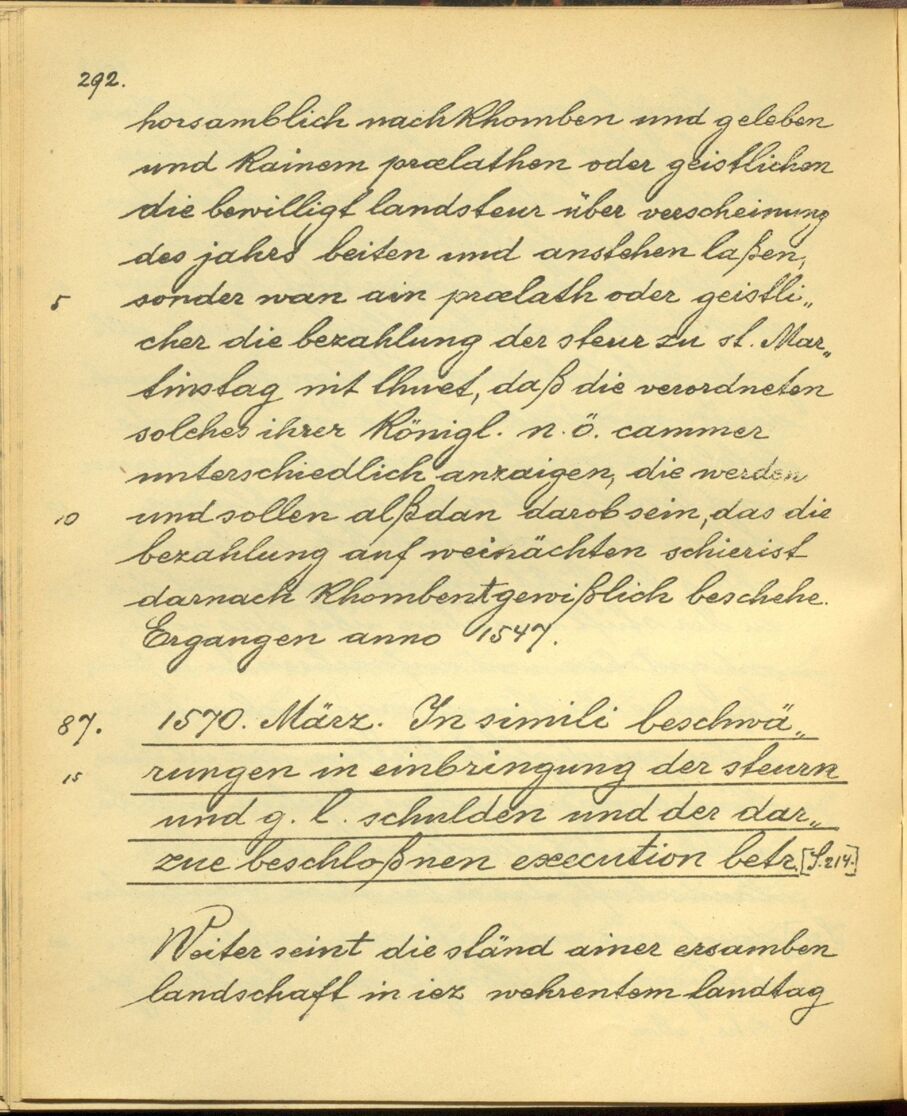 292.
horsamblich nachkhomben und geleben
und kainem prælathen oder geistlichen
die bewilligt landsteur über verscheinung
des jahrs beiten und anstehen laßen,
5 sonder wan ain prælath oder geistli„
cher die bezahlung der steur zu st. Mar„
tinstag nit thuet, daß die verordneten
solches ihrer Königl. n. ö. cammer
unterschiedlich anzaigen, die werden
10 und sollen alßdan darob sein, das die
bezahlung auf weinächten schierist
darnach khombent gewißlich beschehe.
Ergangen anno 1547.
87. 1570. März. In simili beschwä„
15 rungen in einbringung der steurn
und g. l. schulden und der dar„
zue beschloßnen execution betr. [S. 214.]
Weiter seint die ständ ainer ersamben
landschaft in iez wehrentem landtag